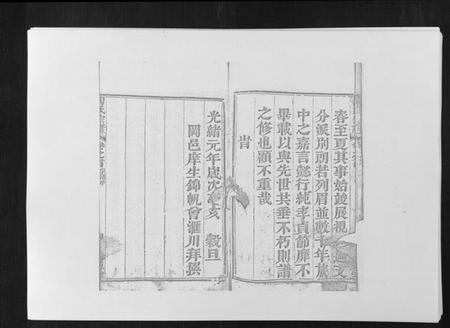 春至夏其事始竣展視
分派別朗若列眉並數千年族
中之嘉言懿行純孝貞節靡不
畢載以與先世共垂不朽則譜
之修也顧不重哉
峕
光緒元年歲次乙亥 穀旦
岡邑庠生錦帆曾滙川拜撰